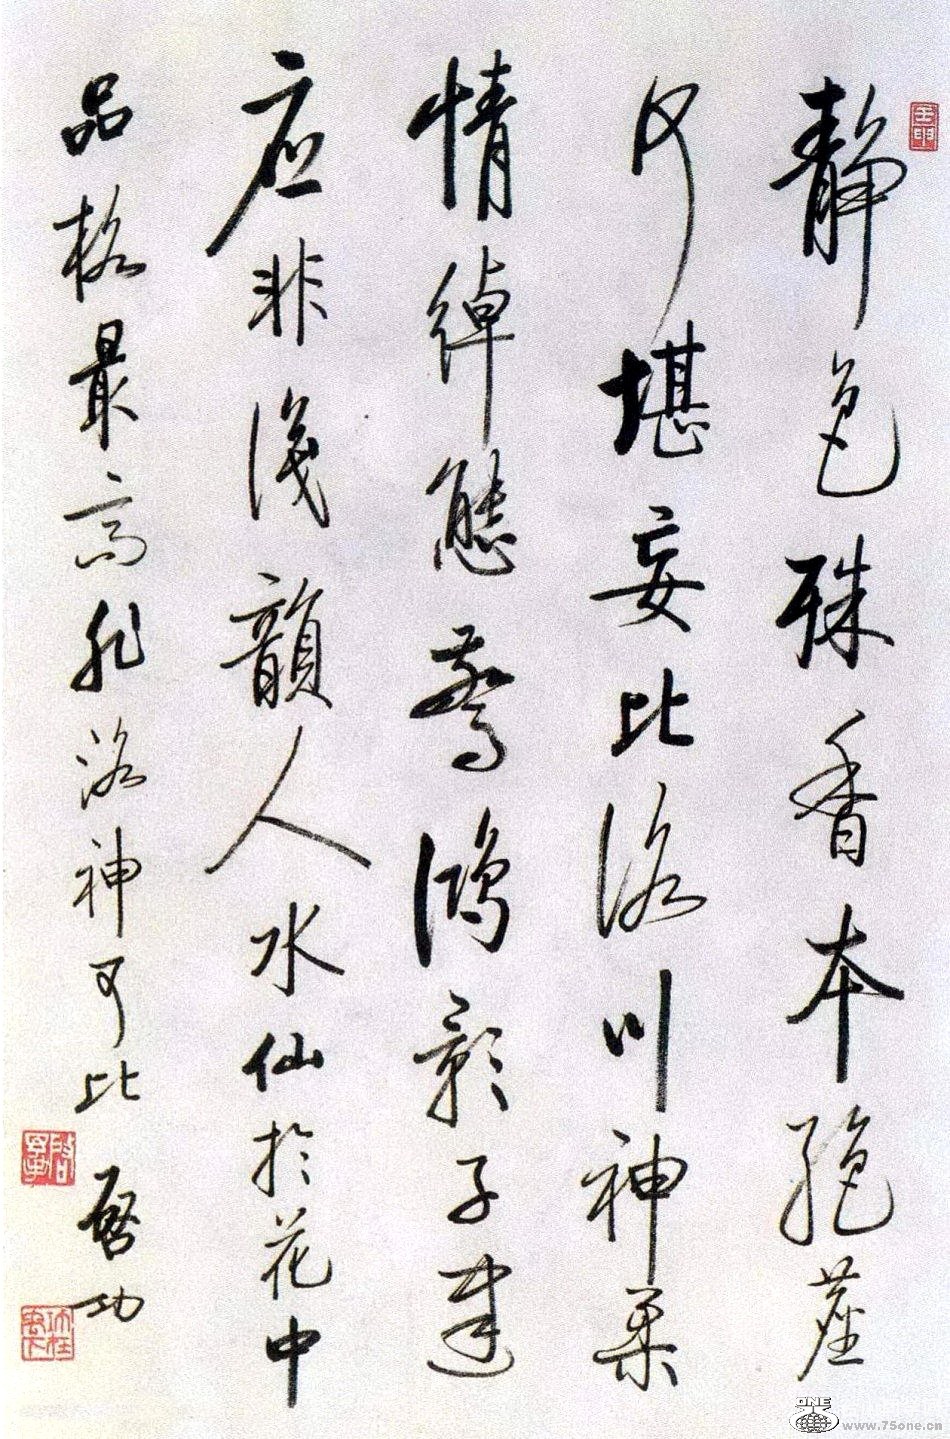 静色殊香本絕塵
何堪妄比洛川神柔
情綽態驚鴻影子建
应非淺韻人水仙於花中
品格最高非洛神可比
啓功
ONE
www.75one.cn